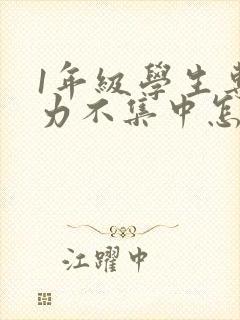 1年級學生專
力不集中怎
江躍中